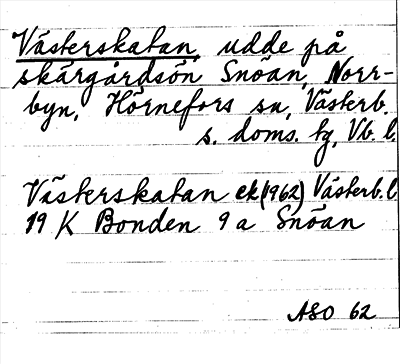 Västerskatan, udde på
skärgårdsön Snöan, Norr-
byn, Hörnefors sn, Västerb.
s. doms. tg, Vb. l.
Västerskatan ek (1962) Västerb. l.
19 K Bonden 9 a Snöan
ASO 62